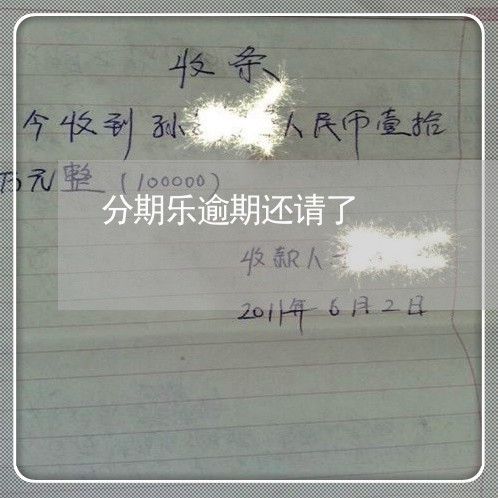 收条
今收到孙 人民币壹拾
万元整(100000)
分期乐逾期还请了
收款人
2011年6月2日